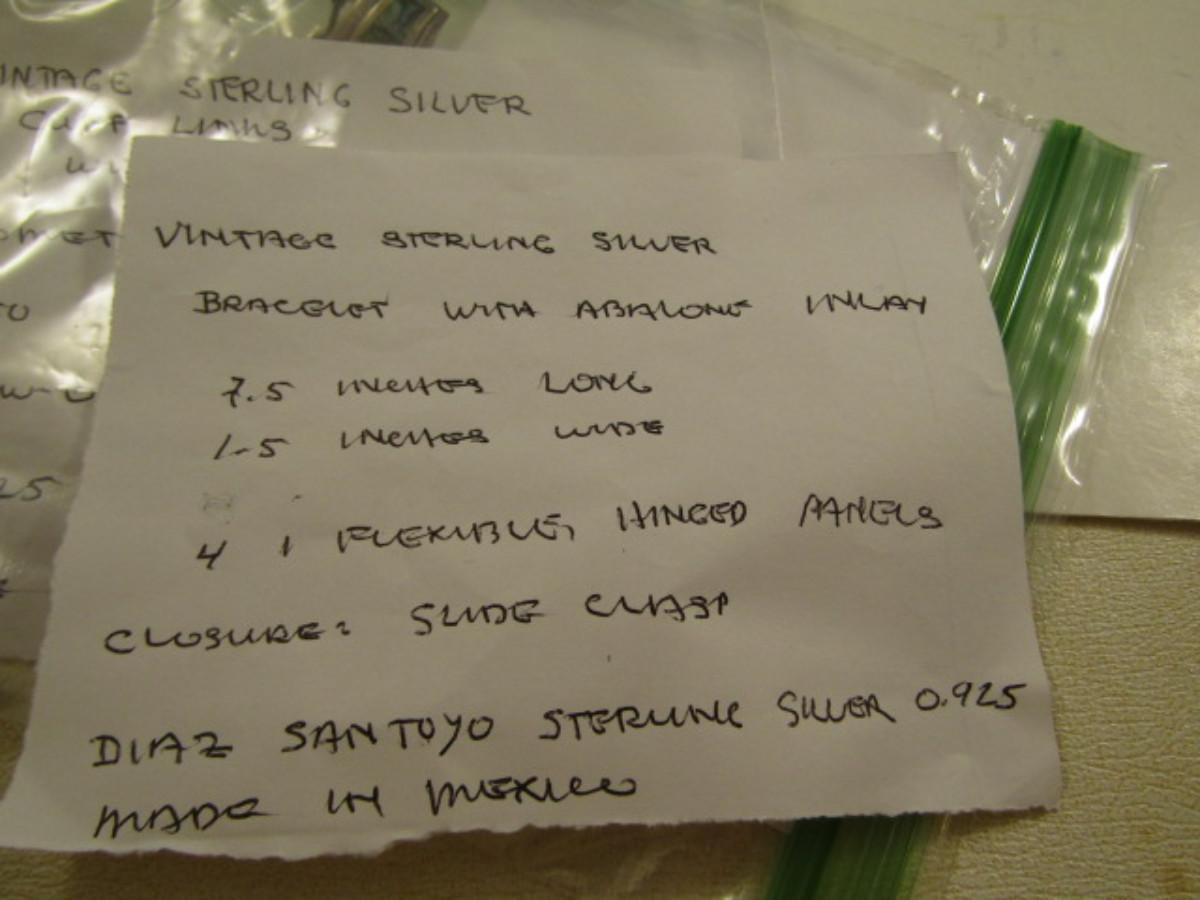 VINTAGE STERLING SILVER
CUFF LINKS
VINTAGE STERLING SILVER
BRACELET WITH ABALONE INLAY
7.5 INCHES LONG
1.5 INCHES WIDE
4 FLEXIBLE, HINGED PANELS
CLOSURE: SLIDE CLASP
DIAZ SANTOYO STERLING SILVER 0.925
MADE IN MEXICO